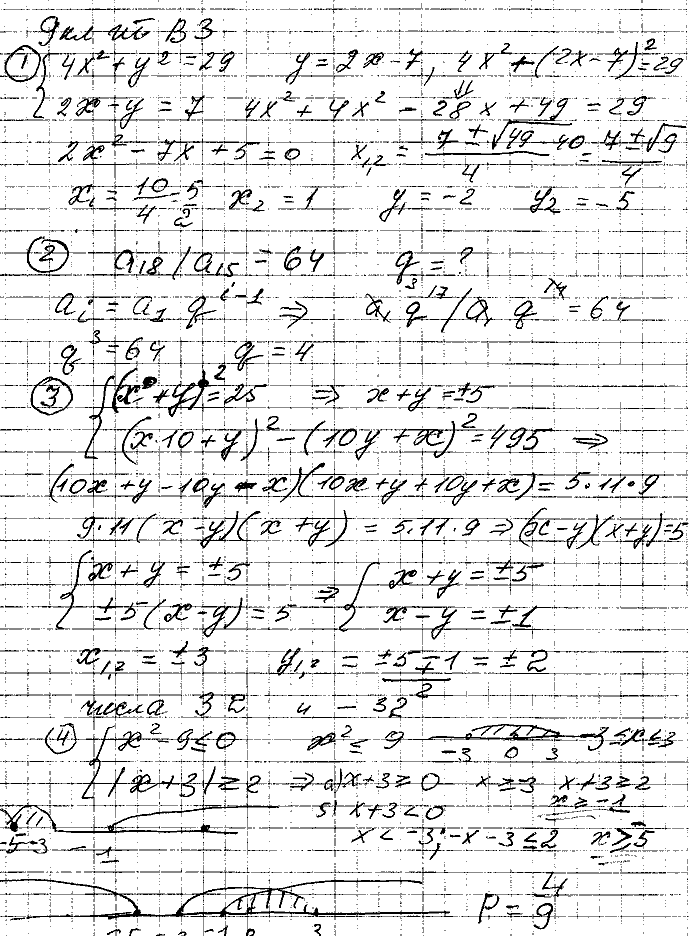 9 кл ит В 3
① { 4x² + y² = 29    y = 2x - 7, 4x² + (2x - 7)² = 29
2x - y = 7    4x² + 4x² - 28x + 49 = 29
2x² - 7x + 5 = 0    x₁,₂ = (7 ± √49 - 40)/4 = (7 ± √9)/4
x₁ = 10/4 = 5/2    x₂ = 1    y₁ = -2    y₂ = -5
② a₁₈ / a₁₅ = 64    q = ?
aᵢ = a₁ qⁱ⁻¹ ⇒ a₁ q¹⁷ / a₁ q¹⁴ = 64
q³ = 64    q = 4
③ { (x + y)² = 25 ⇒ x + y = ±5
(x·10 + y)² - (10y + x)² = 495 ⇒
(10x + y - 10y - x)(10x + y + 10y + x) = 5·11·9
9·11(x - y)(x + y) = 5·11·9 ⇒ (x - y)(x + y) = 5
{ x + y = ±5    ⇒ { x + y = ±5
±5(x - y) = 5    x - y = ±1
x₁,₂ = ±3    y₁,₂ = (±5 ∓ 1)/2 = ±2
числа 32 и -32
④ { x² - 9 ≤ 0    x² ≤ 9    -3 0 3    -3 ≤ x ≤ 3
|x + 3| ≥ 2 ⇒ а) x + 3 ≥ 0    x ≥ -3    x + 3 ≥ 2
б) x + 3 < 0    x ≥ -1
x < -3; -x - 3 ≤ 2    x ≥ -5
-5 -3 -1
P = 4/9
-5 -3 -1 3